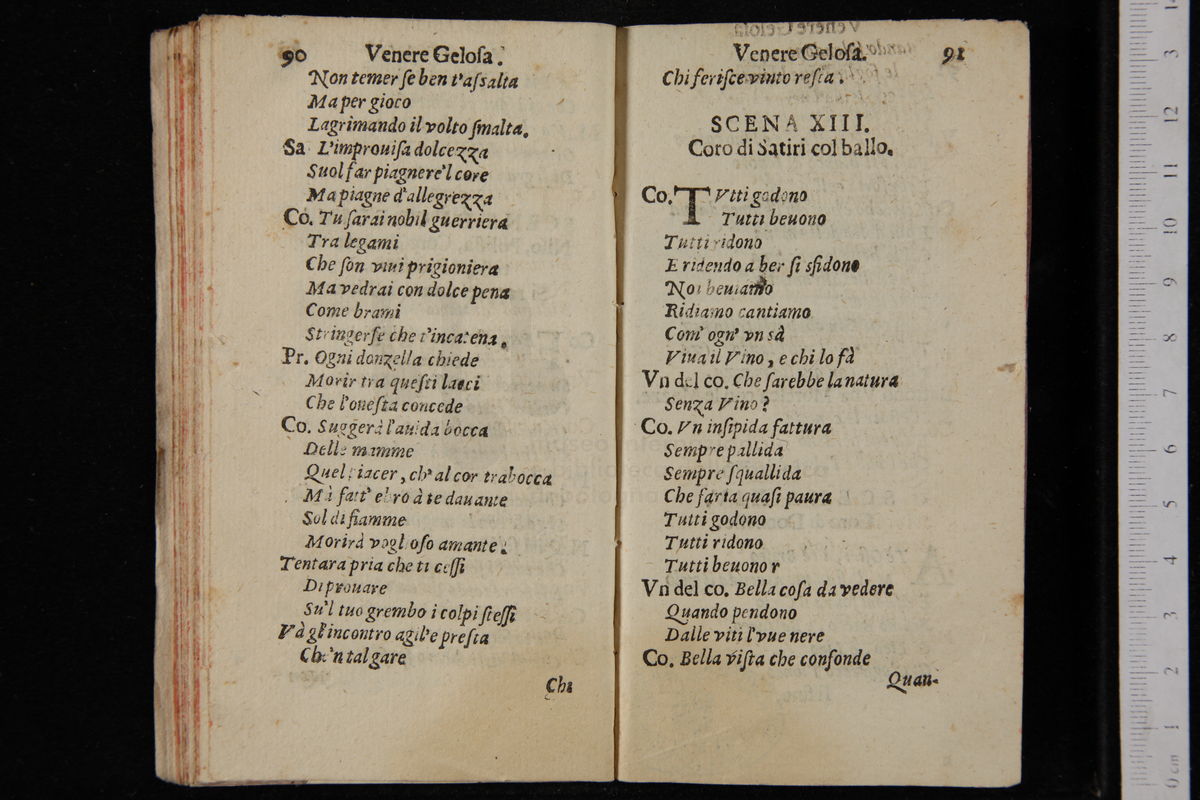 90 Venere Geloſa.
Non temer ſe ben t'aſsalta
Ma per gioco
Lagrimando il volto ſmalta.
Sa L'improuiſa dolcezza
Suol far piagnere'l core
Ma piagne d'allegrezza
Co. Tu ſarai nobil guerriera
Tra legami
Che ſon viui prigioniera
Ma vedrai con dolce pena
Come brami
Stringerſe che t'incatena.
Pr. Ogni donzella chiede
Morir tra queſti lacci
Che l'oneſta concede
Co. Suggerà l'auida bocca
Delle mamme
Quel piacer, ch' al cor trabocca
Mà fatt' ebro à te dauante
Sol di fiamme
Morirà voglioſo amante.
Tentara pria che ti ceſſi
Di prouare
Su'l tuo grembo i colpi ſteſſi
Và gl'incontro agil'e preſta
Che'n tal gare
Chi
Venere Geloſa. 91
Chi feriſce vinto reſta.
SCENA XIII.
Coro di Satiri col ballo.
Co. TVtti godono
Tutti beuono
Tutti ridono
E ridendo a ber ſi sfidono
Noi beuiamo
Ridiamo cantiamo
Com' ogn' vn sà
Viua il Vino, e chi lo fà
Vn del co. Che ſarebbe la natura
Senza Vino?
Co. Vn inſipida fattura
Sempre pallida
Sempre ſquallida
Che farta quaſi paura
Tutti godono
Tutti ridono
Tutti beuono r
Vn del co. Bella coſa da vedere
Quando pendono
Dalle viti l'vue nere
Co. Bella viſta che confonde
Quan-